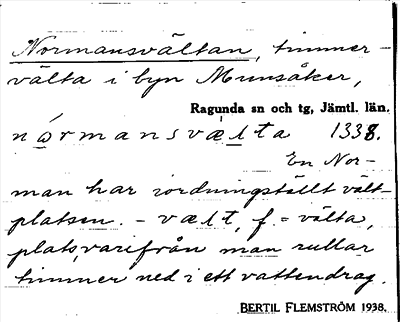 Normansvältan, timmer-
välta i byn Munsåker,
Ragunda sn och tg, Jämtl. län.
nórmansvælta 1338.
En Nor-
man har iordningställt vält-
platsen. – vælt, f. = välta,
plats, varifrån man rullar
timmer ned i ett vattendrag.
BERTIL FLEMSTRÖM 1938.